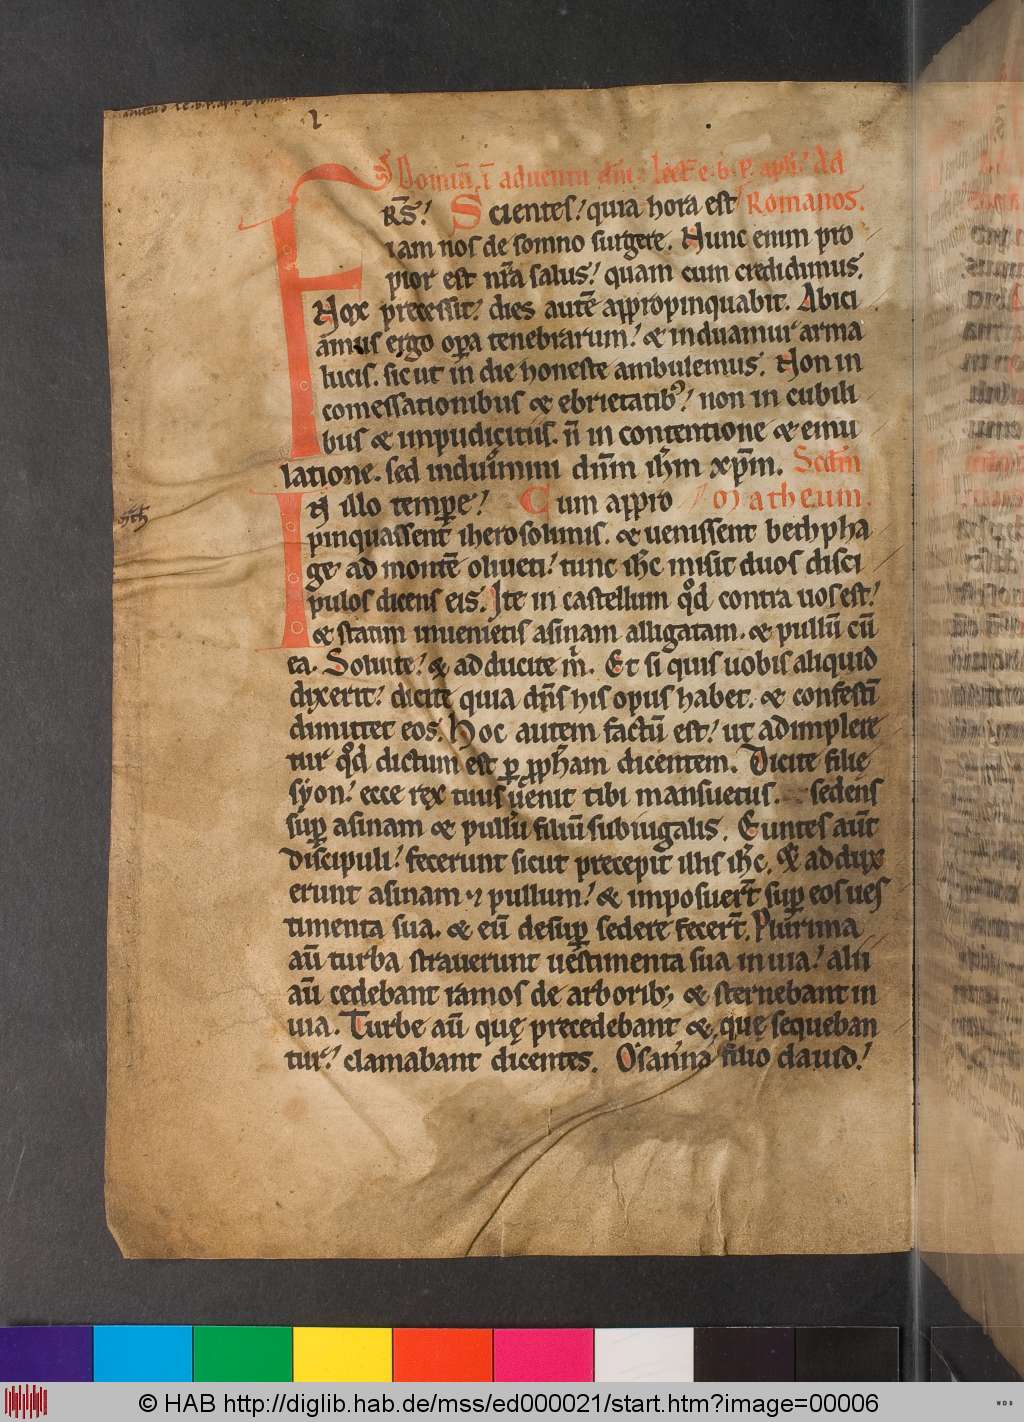 Domīn̄. ī aduentu dn̄i. Lect̄. e. b. P. apl̄i. Ad
Romanos.
FR̄S! Scientes! quia hora est
iam nos de somno surgere. Nunc enim pro
pior est nr̄a salus! quam cum credidimus.
Nox precessit! dies autē appropinquabit. Abici
amus ergo op̄a tenebrarum! & induamur arma
lucis. sicut in die honeste ambulemus. Non in
comessationibus & ebrietatibꝰ! non in cubili
bus & impudicitiis. n̄ in contentione & emu
latione. sed induimini dn̄m ih̄m xp̄m. Scd̄m
Matheum.
IN illo tempore! Cum appro
pinquassent iherosolimis. & uenissent bethpha
ge ad montē oliueti! tunc ih̄c misit duos disci
pulos dicens eis. Ite in castellum qd̄ contra uos est!
& statim inuenietis asinam alligatam. & pullū cū
ea. Soluite! & adducite m̄. Et si quis uobis aliquid
dixerit! dicite quia dn̄s his opus habet. & confestī
dimittet eos. Hoc autem factū est! ut adimplere
tur qd̄ dictum est ꝑ ꝓph̄am dicentem. Dicite filię
syon! ecce rex tuus uenit tibi mansuetus. sedens
suꝑ asinam & pullū filiū subiugalis. Euntes aūt
discipuli! fecerunt sicut precepit illis ih̄c. & addux
erunt asinam ⁊ pullum! & imposuer̄t suꝑ eos ues
timenta sua. & eū desuꝑ sedere fecer̄t. Plurima
aū turba strauerunt uestimenta sua in uia! alii
aū cedebant ramos de arborib; & sternebant in
uia. Turbe aū quę precedebant & quę sequeban
tur! clamabant dicentes. Osanna filio dauid!
© HAB http://diglib.hab.de/mss/ed000021/start.htm?image=00006